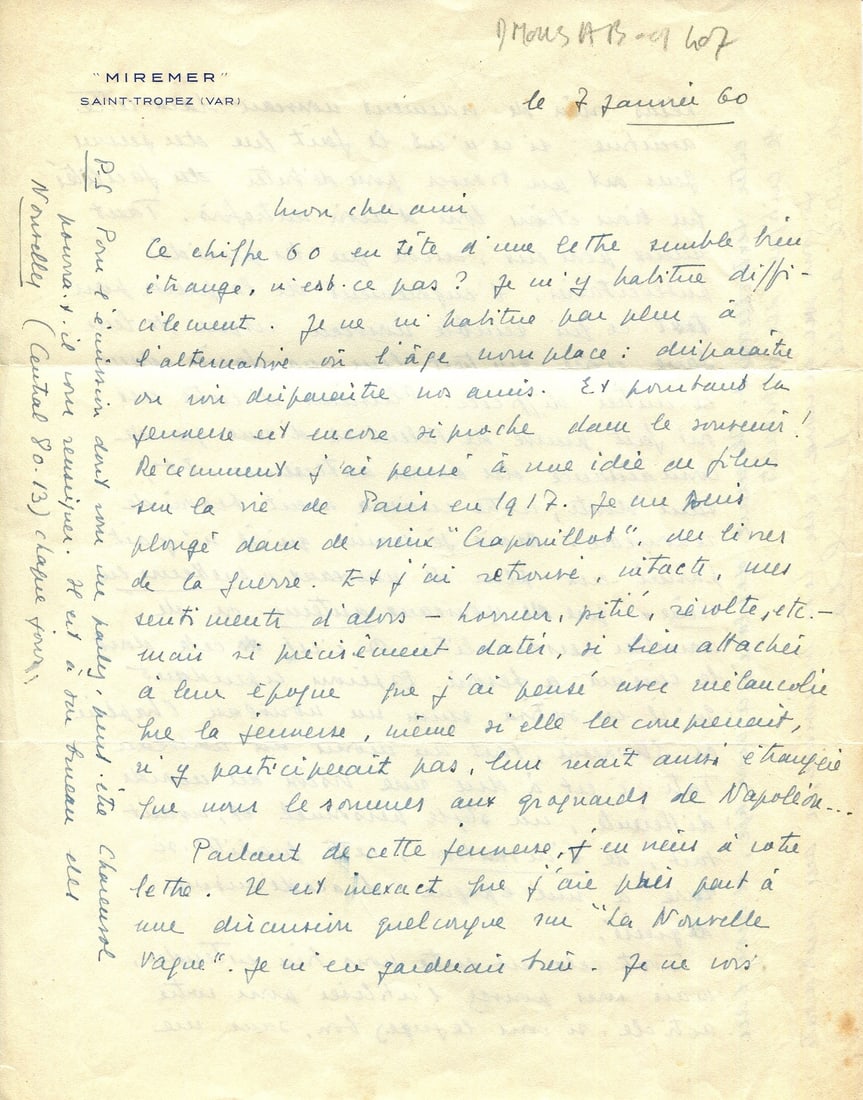 "MIREMER"
SAINT-TROPEZ (VAR)
le 7 Janvier 60
Mon cher ami
Ce chiffre 60 en tête d'une lettre semble bien
étrange, n'est-ce pas ? Je m'y habitue diffi-
cilement. Je ne m'habitue pas plus à
l'alternative où l'âge nous place : disparaître
ou voir disparaître nos amis. Et pourtant la
jeunesse est encore si proche dans le souvenir !
Récemment j'ai pensé à une idée de film
sur la vie de Paris en 1917. Je me suis
plongé dans de vieux "Crapouillot", des livres
de la guerre. Et j'ai retrouvé, intacts, mes
sentiments d'alors – horreur, pitié, révolte, etc. –
mais si précisément datés, si bien attachés
à leur époque que j'ai pensé avec mélancolie
que la jeunesse, même si elle les comprenait,
n'y participerait pas, leur serait aussi étrangère
que nous le sommes aux grognards de Napoléon...
Parlant de cette jeunesse, j'en viens à votre
lettre. Il est inexact que j'aie pris part à
une discussion quelconque sur "La Nouvelle
Vague". Je m'en garderais bien. Je ne vois
P.S Pour l'émission dont vous me parlez, peut-être Charensol
pourrait-il vous renseigner. Il est à son bureau des
Nouvelles (Central 80.13) chaque jour.